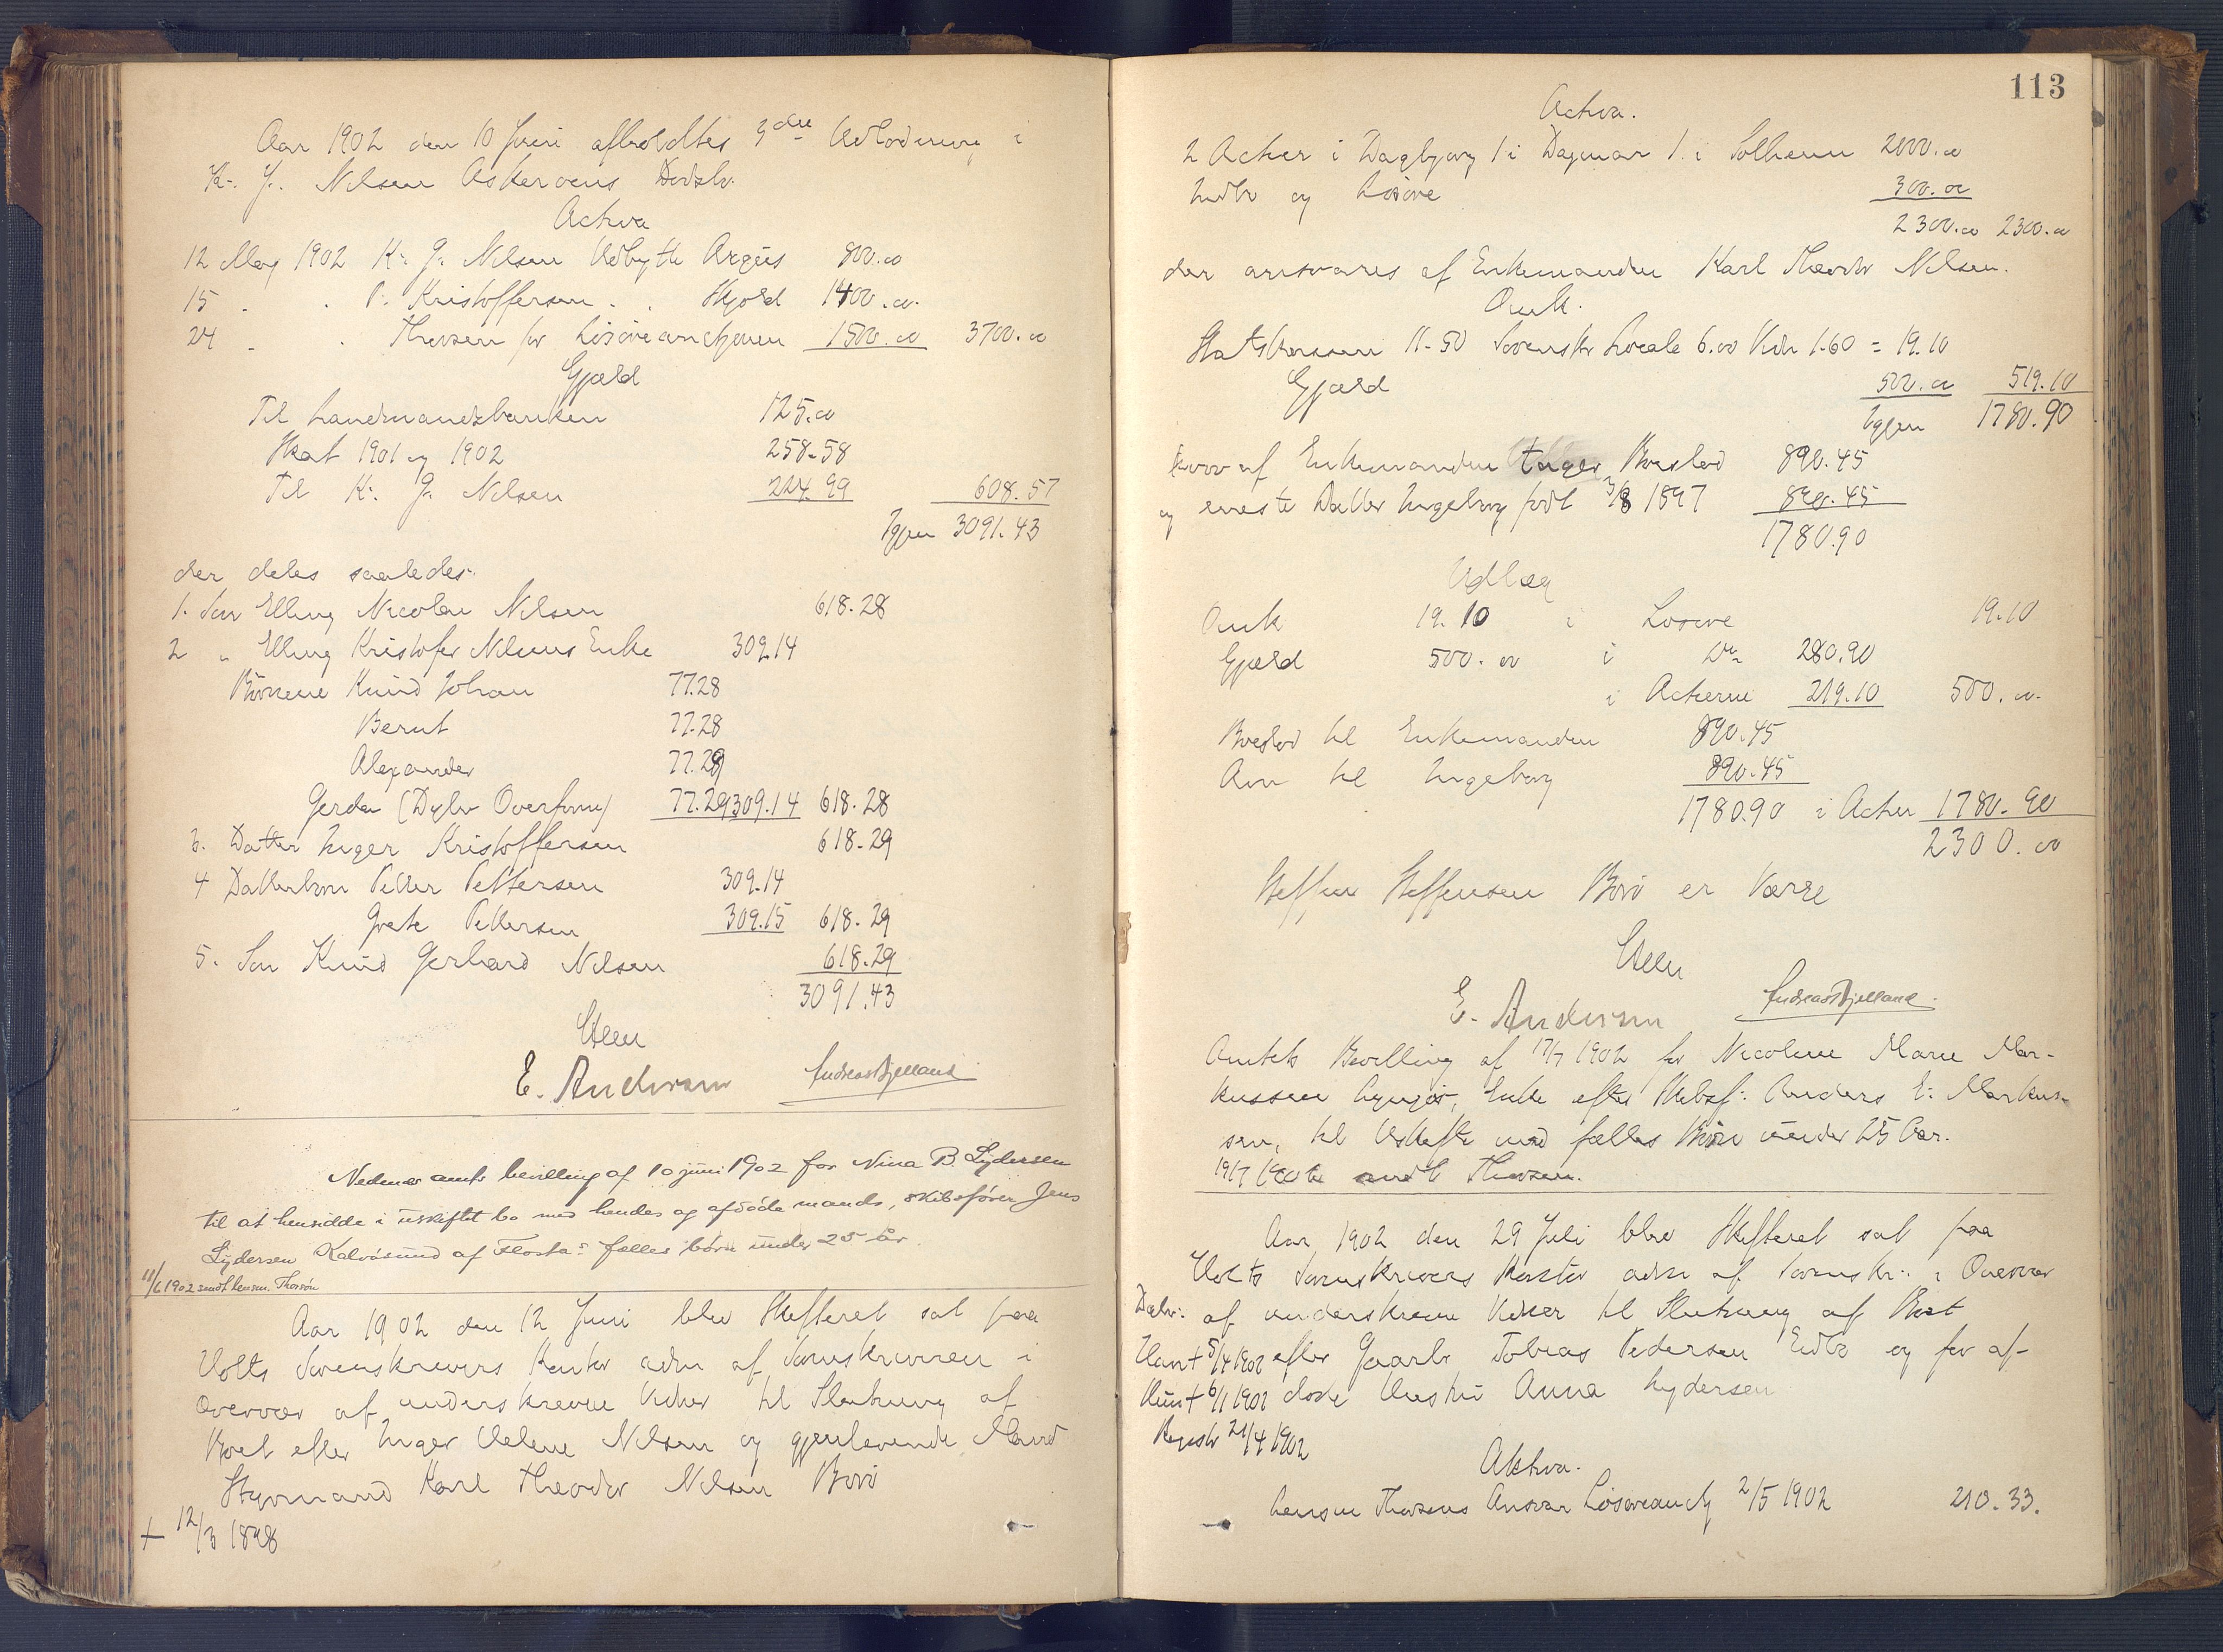 Aar 1902 den 10 Juni afholdtes 3die Udlodning i
K. J. Nilsen Askerøens Dødsbo.
Activa
12 May 1902 K. J. Nilsen Udbytte Argus 800.00
15 " " P. Kristoffersen " " Skjold 1400.00
24 " " Thorsen for Løsøreauctionen 1500.00 3700.00
Gjæld
Til Landmandsbanken 125.00
Skat 1901 og 1902 258-58
Til K. J. Nilsen 224.99 608.57
Igjen 3091.43
der deles saaledes:
1. Søn Elling Nicolai Nilsen 618.28
2 " Elling Kristofer Nilsens Enke 309.14
Børnene Knud Johan 77.28
Berent 77.28
Alexander 77.29
Gerda 77.29 309.14 618.28
3. Datter Inger Kristoffersen 618.29
4 Datterbørn Petter Pettersen 309.14
Grete Pettersen 309.15 618-29
5. Søn Knud Gerhard Nilsen 618.29
3091.43
E. Andersen Andreas Bjelland
Nedenæs amts bevilling af 10 juni 1902 for Nina B. Lydersen
til at hensidde i uskiftet bo med hendes og afdøde mands, skibsfører Jens
Lydersen Kalvøsund af Flosta's fælles børn under 25 år.
11/6 1902 sendt lensm. Thorsen
Aar 1902 den 12 Juni blev Skifteret sat paa
Holts Sorenskriveris Kontor adm af Sorenskriveren i
Overvær af underskrevne Vidner til Slutning af
Boet efter Inger Helene Nilsen og gjenlevende Mand
Styrmand Karl Theodor Nilsen Borø
+ 12/3 1898
113
Activa.
2 Actier i Dagbjørg 1 i Dagmar 1 i Solheim 2000.00
Indbo og Løsøre 300.00
2300.00 2300.00
der ansvares af Enkemanden Karl Theodor Nilsen.
Omk.
Statskassen 11-50 Sorenskr Locale 6.00 Vidn 1-60 = 19.10
Gjæld 500.00 519.10
Igjen 1780.90
hvoraf Enkemanden tager Boeslod 890.45
og eneste Datter Ingeborg født 3/8 1897 890.45
1780.90
Udlæg
Omk 19.10 i Løsøre 19.10
Gjæld 500.00 i Do 280.90
i Actierne 219.10 500.00
Boeslod til Enkemanden 890.45
Arv til Ingeborg 890.45
1780.90 i Actier 1780.90
2300.00
Steffen Steffensen Borø er Værge
E. Andersen Andreas Bjelland
Amtets Bevilling af 17/7 1902 for Nicoline Marie Mar-
kussen Lyngør, Enke efter Skibsf. Anders E. Markus-
sen, til Uskifte med fælles Børn under 25 Aar.
19/7 1902 sendt Thorsen.
Aar 1902 den 29 Juli blev Skifteret sat paa
Holts Sorenskriveris Kontor adm af Sorenskr. i Overvær
af underskrevne Vidner til Slutning af Boet
Han + 5/4 1902 efter Gaardbr Tobias Pedersen og før af-
Hun + 6/1 1902 døde Hustru Anna Lydersen
Registr 21/4 1902
Aktiva.
Lensm Thorsens Ansvar Løsøreauct 2/5 1902 210.33.